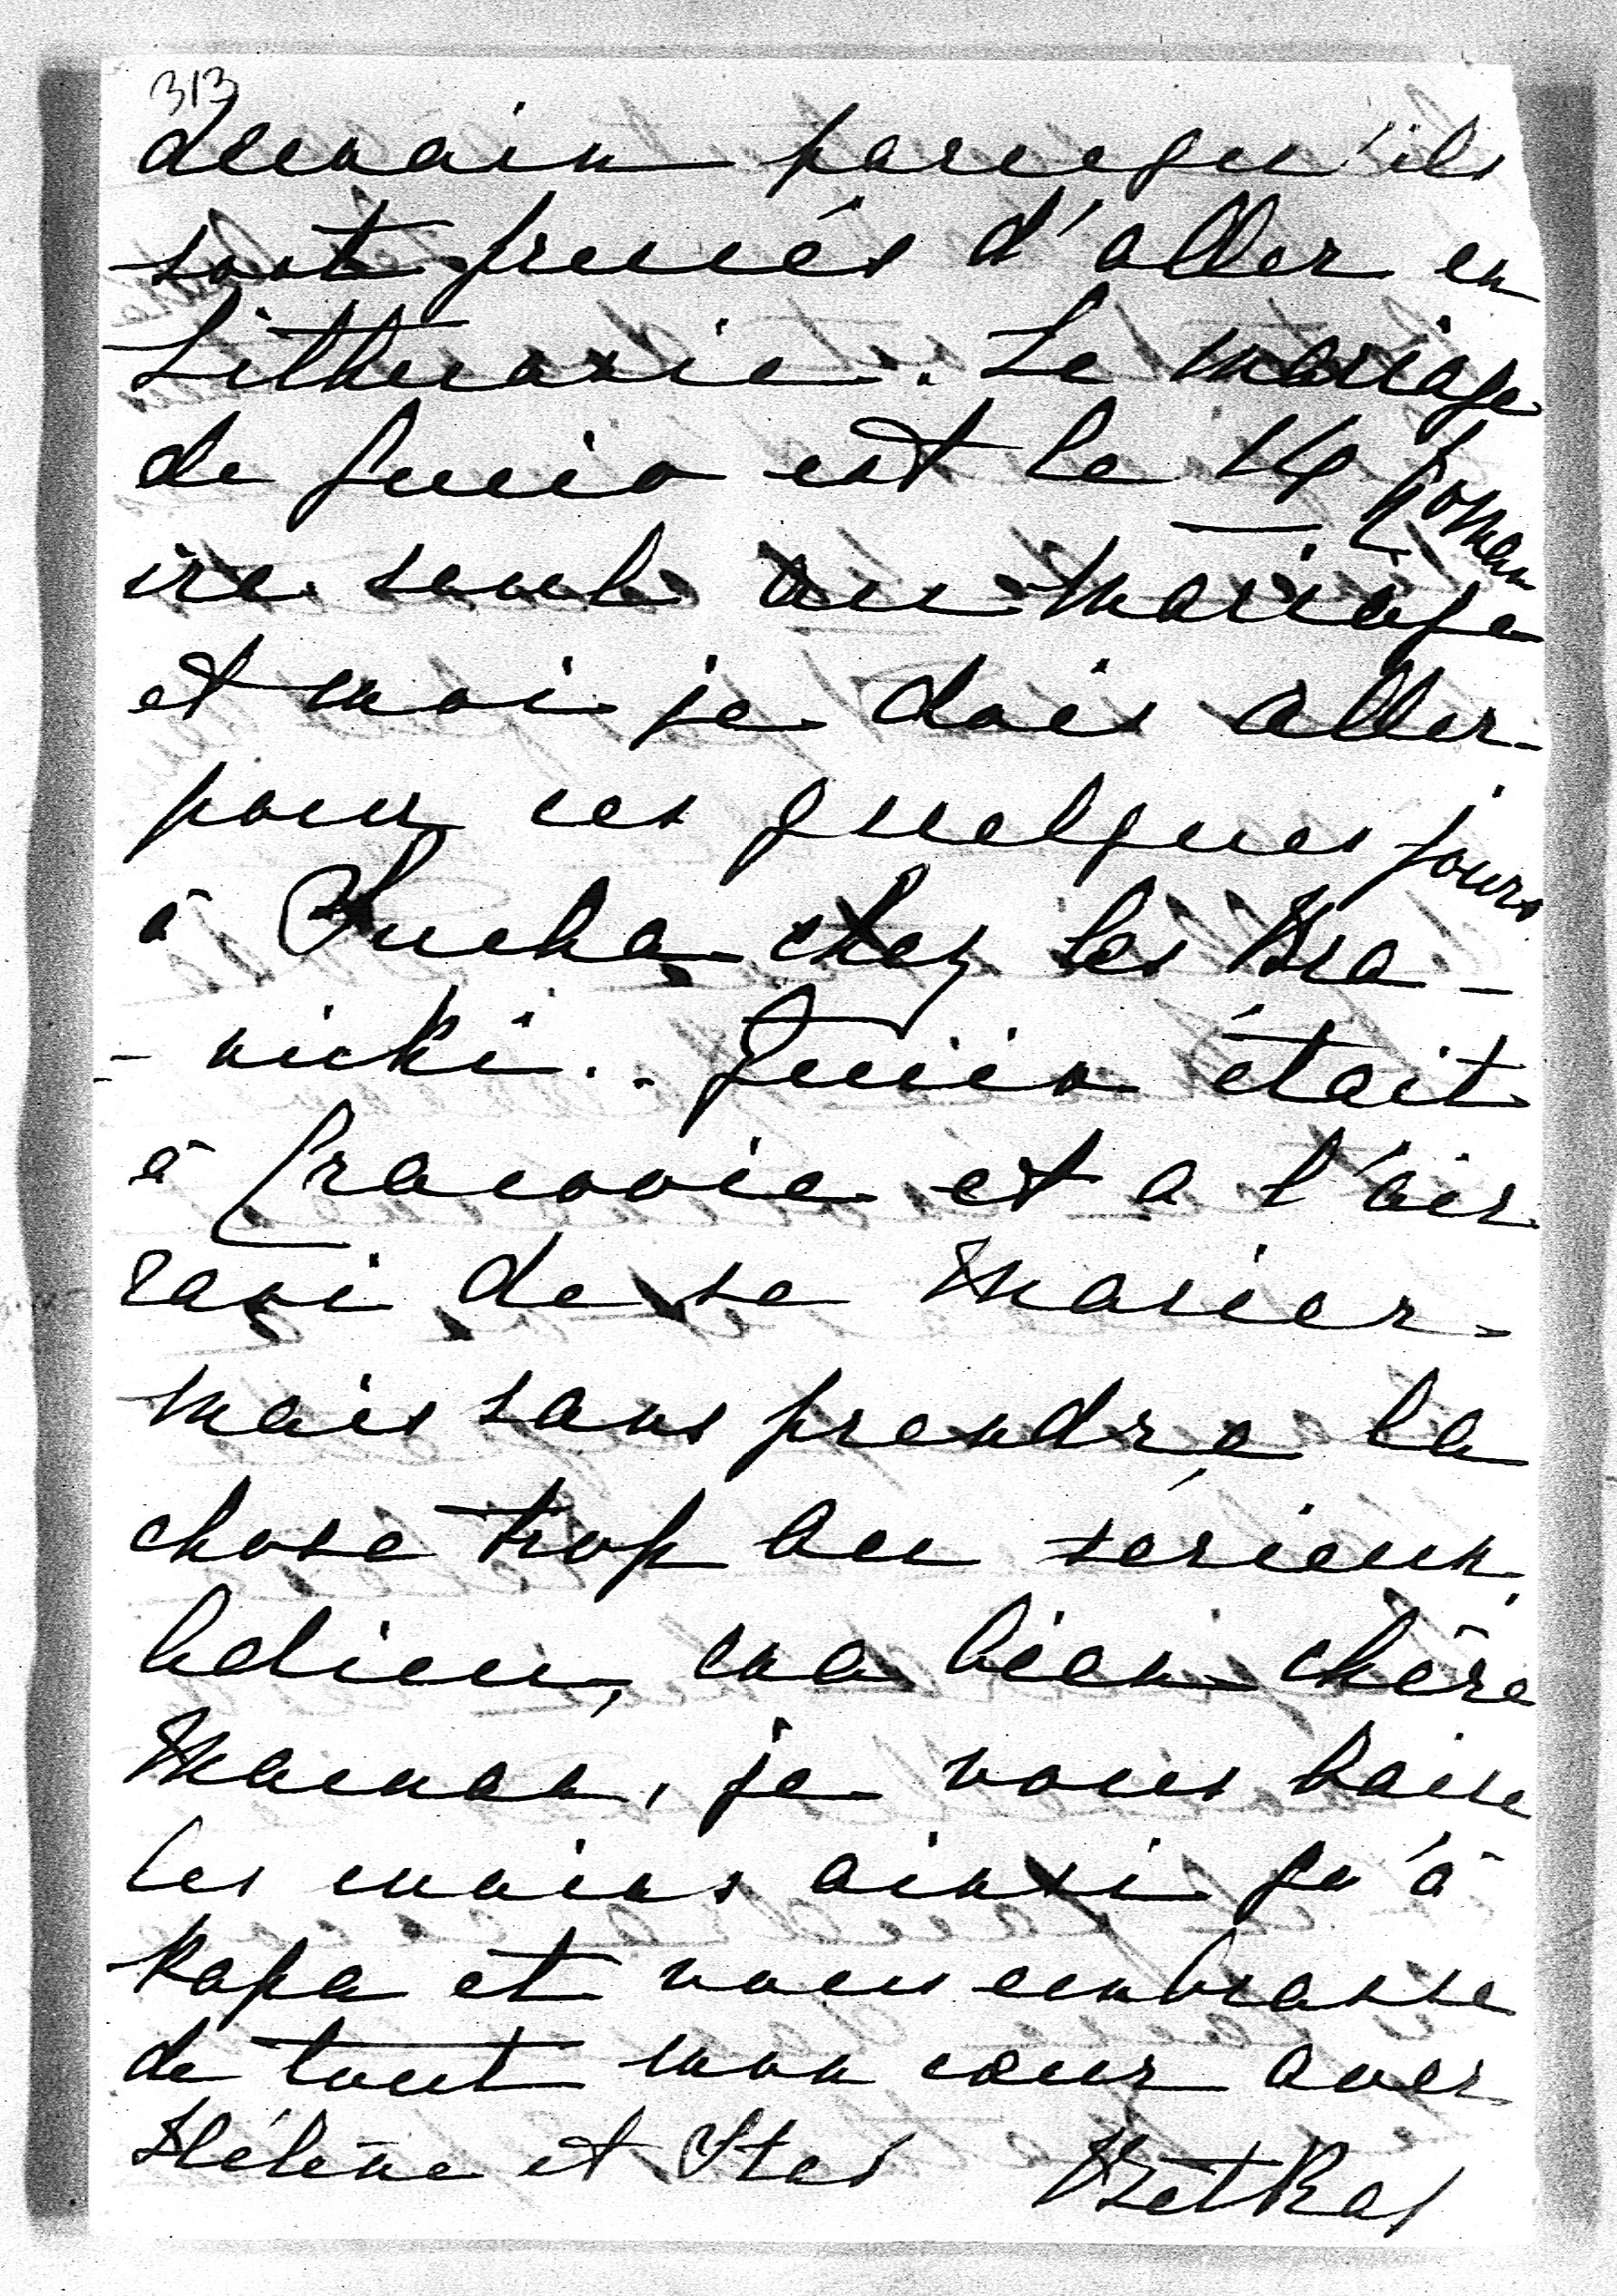 313
demain parcequ'ils
sont pressés d'aller en
Lithuanie. Le mariage
de Gucio est le 14 Roman
ira seul au mariage
et moi je dois aller
pour ces quelques jours
à Sucha chez les Bra-
-nicki. Gucio était
à Cracovie et a l'air
ravi de se marier
mais sans prendre la
chose trop au sérieux,
Adieu, ma bien chère
Maman, je vous baise
les mains ainsi qu'à
Papa et vous embrasse
de tout mon cœur avec
Hélène et Stas BetKa